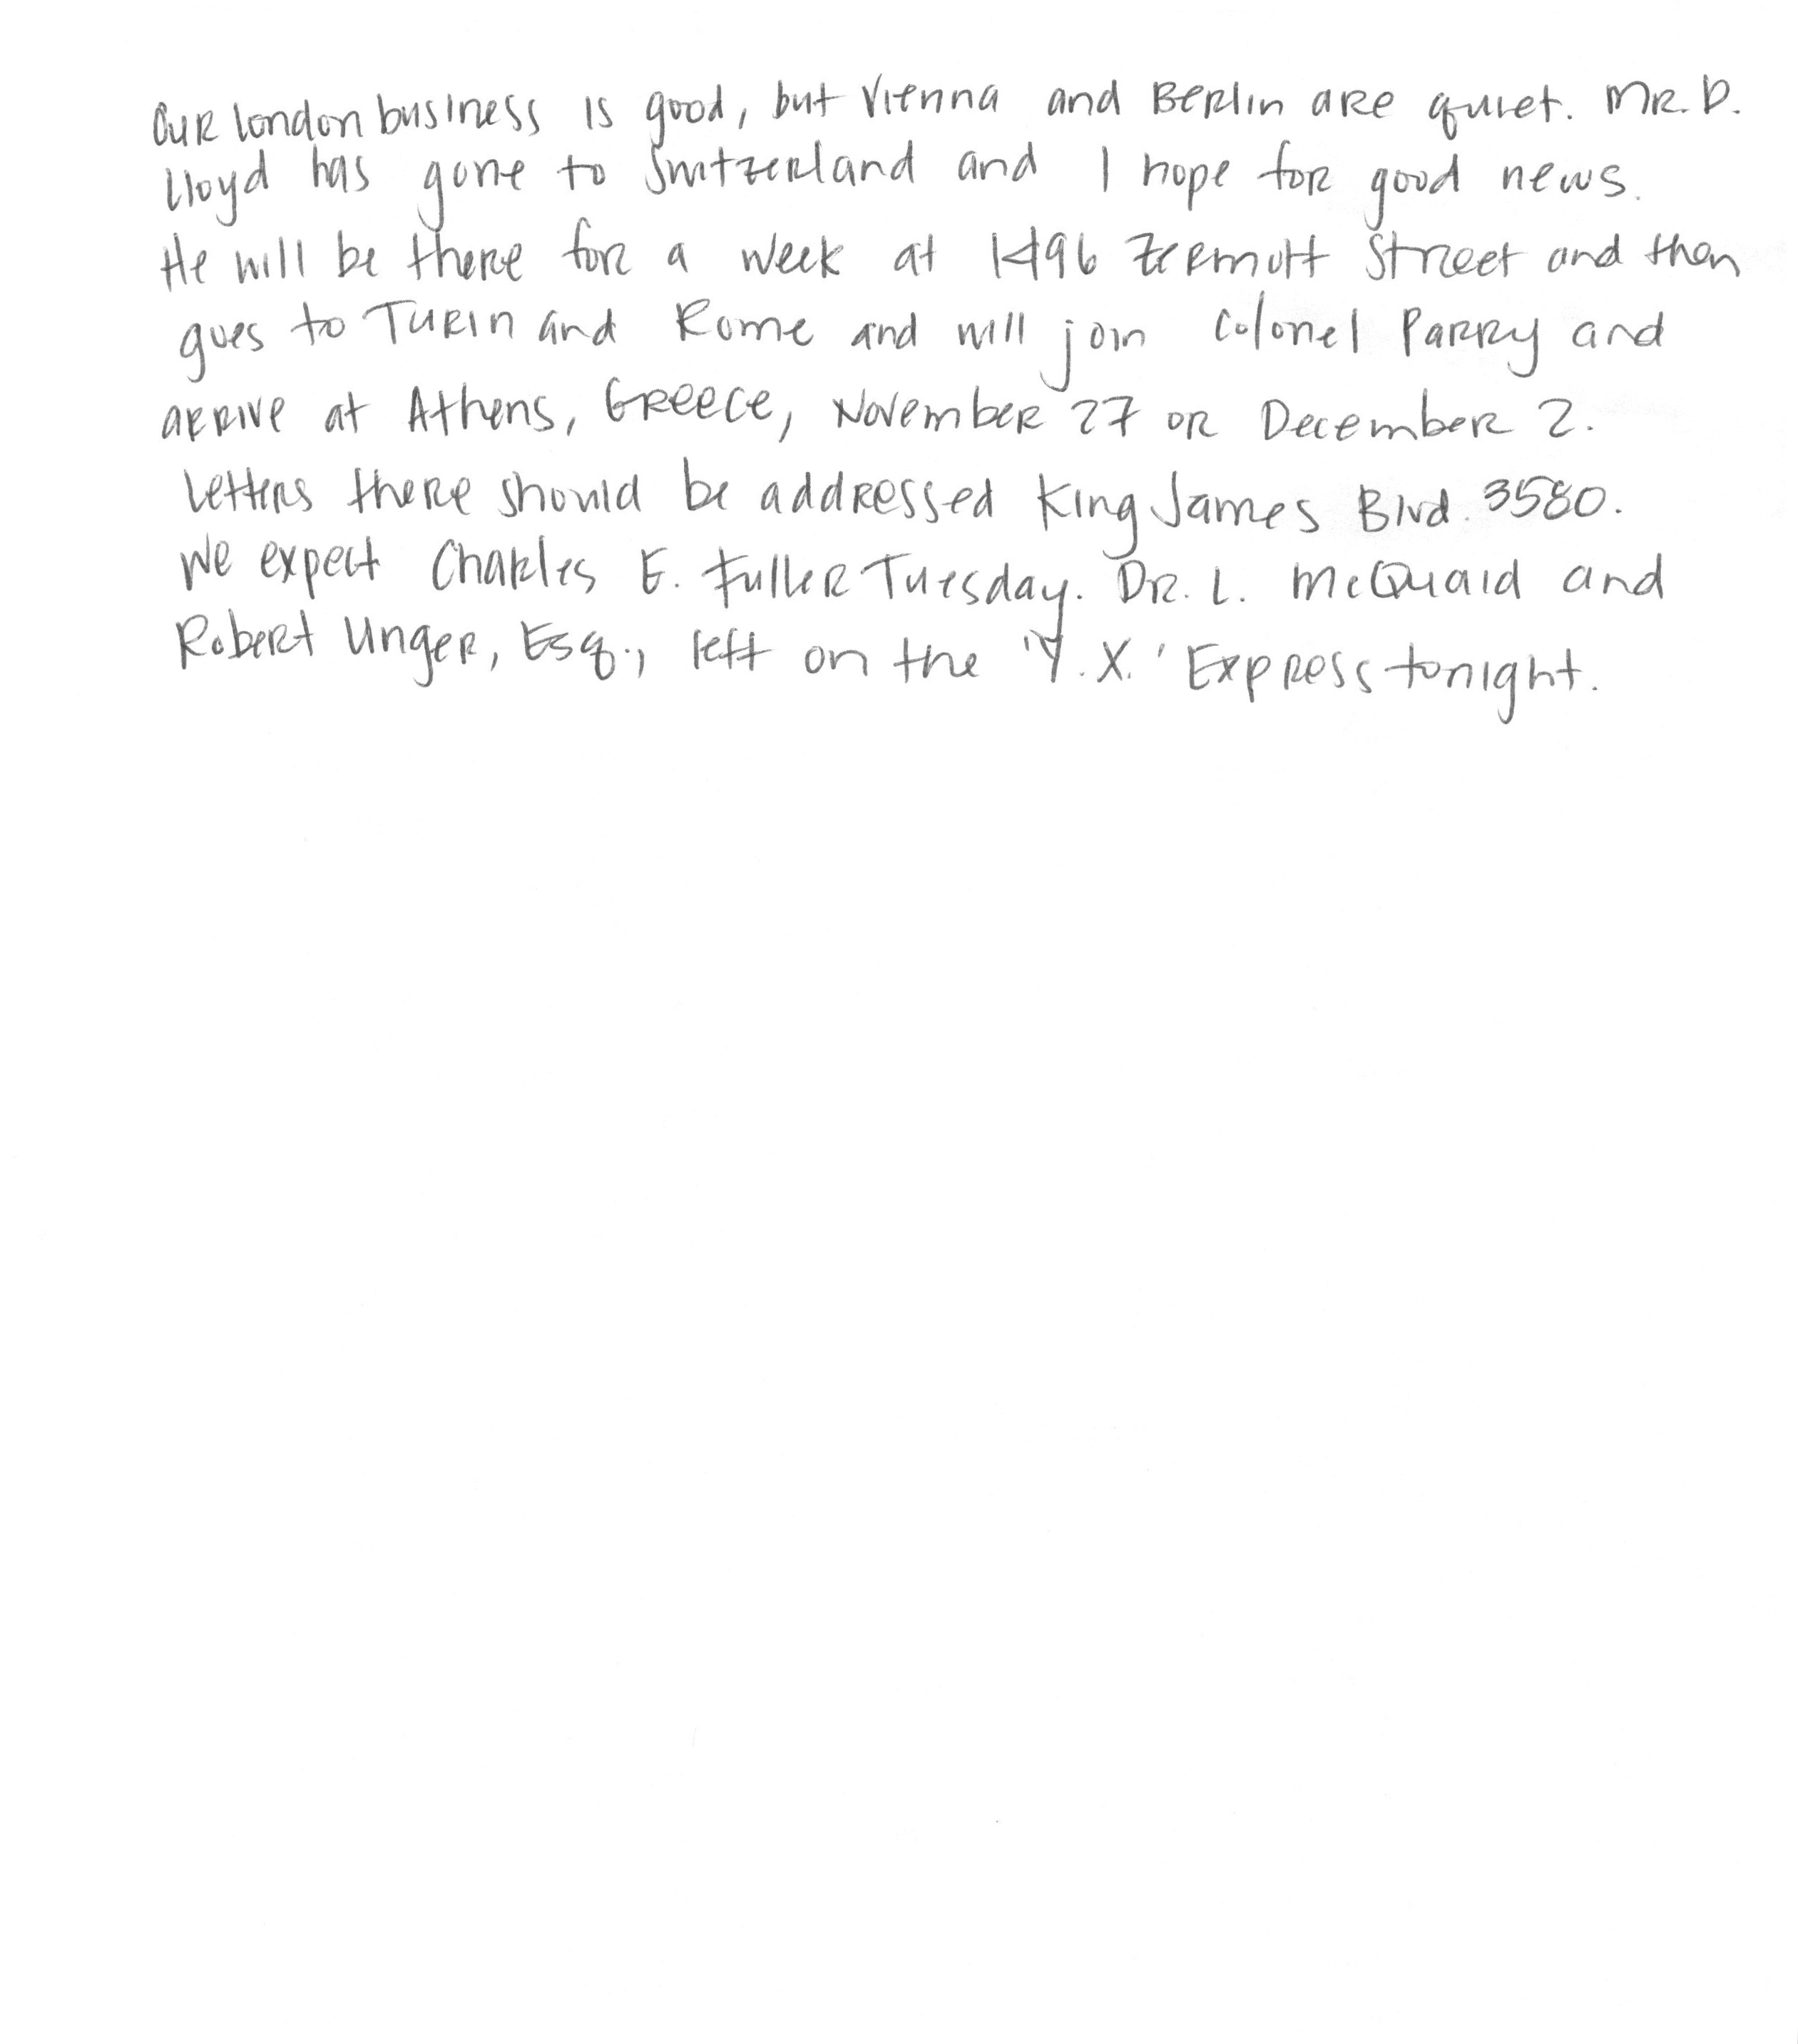 Our London business is good, but Vienna and Berlin are quiet. Mr. D.
Lloyd has gone to Switzerland and I hope for good news.
He will be there for a week at 1496 Zermott Street and then
goes to Turin and Rome and will join Colonel Parry and
arrive at Athens, Greece, November 27 or December 2.
Letters there should be addressed King James Blvd. 3580.
We expect Charles E. Fuller Tuesday. Dr. L. McQuaid and
Robert Unger, Esq., left on the 'Y.X.' Express tonight.